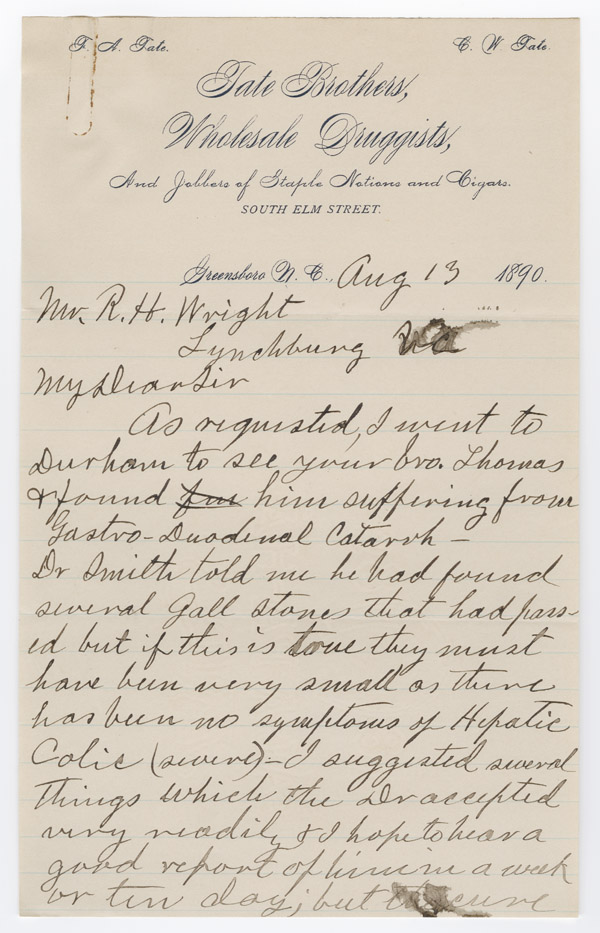 F. A. Tate. C. W. Tate.
Tate Brothers,
Wholesale Druggists,
And Jobbers of Staple Notions and Cigars.
SOUTH ELM STREET.
Greensboro N. C., Aug 13 1890.
Mr. R. H. Wright
Lynchburg
My Dear Sir
As requested, I went to
Durham to see your bro. Thomas
& found him suffering from
Gastro-Duodenal Catarrh -
Dr Smith told me he had found
several Gall stones that had pass-
ed but if this is true they must
have been very small as there
has been no symptoms of Hepatic
Colic (severe) - I suggested several
things which the Dr accepted
very readily & I hope to hear a
good report of him in a week
or ten days; but cure